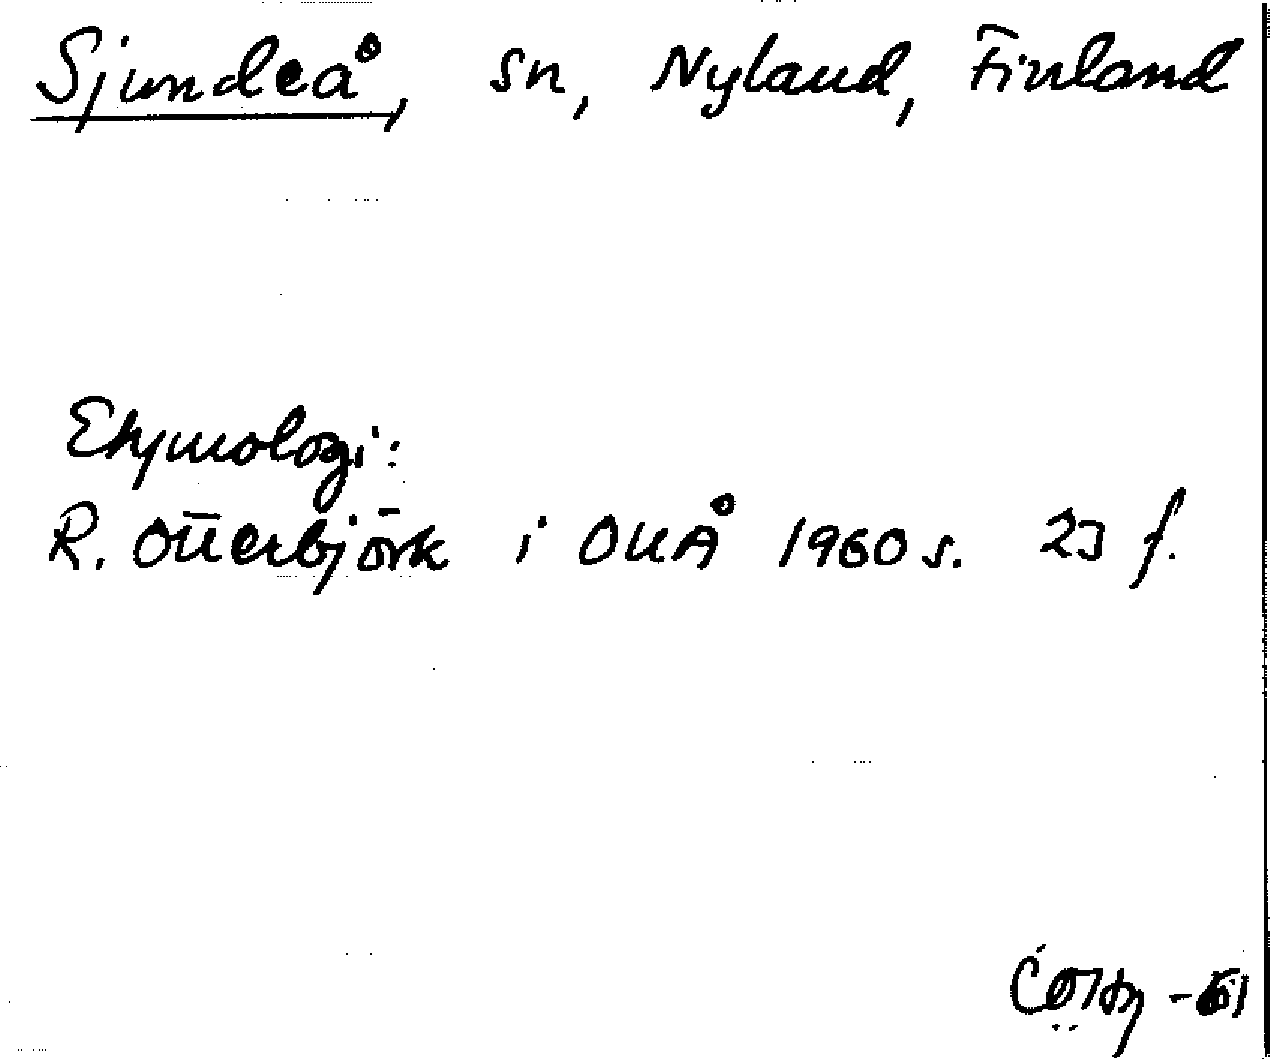 Sjundeå, sn, Nyland, Finland
Etymologi:
R. Otterbjörk i OUÅ 1960 s. 23 f.
-61